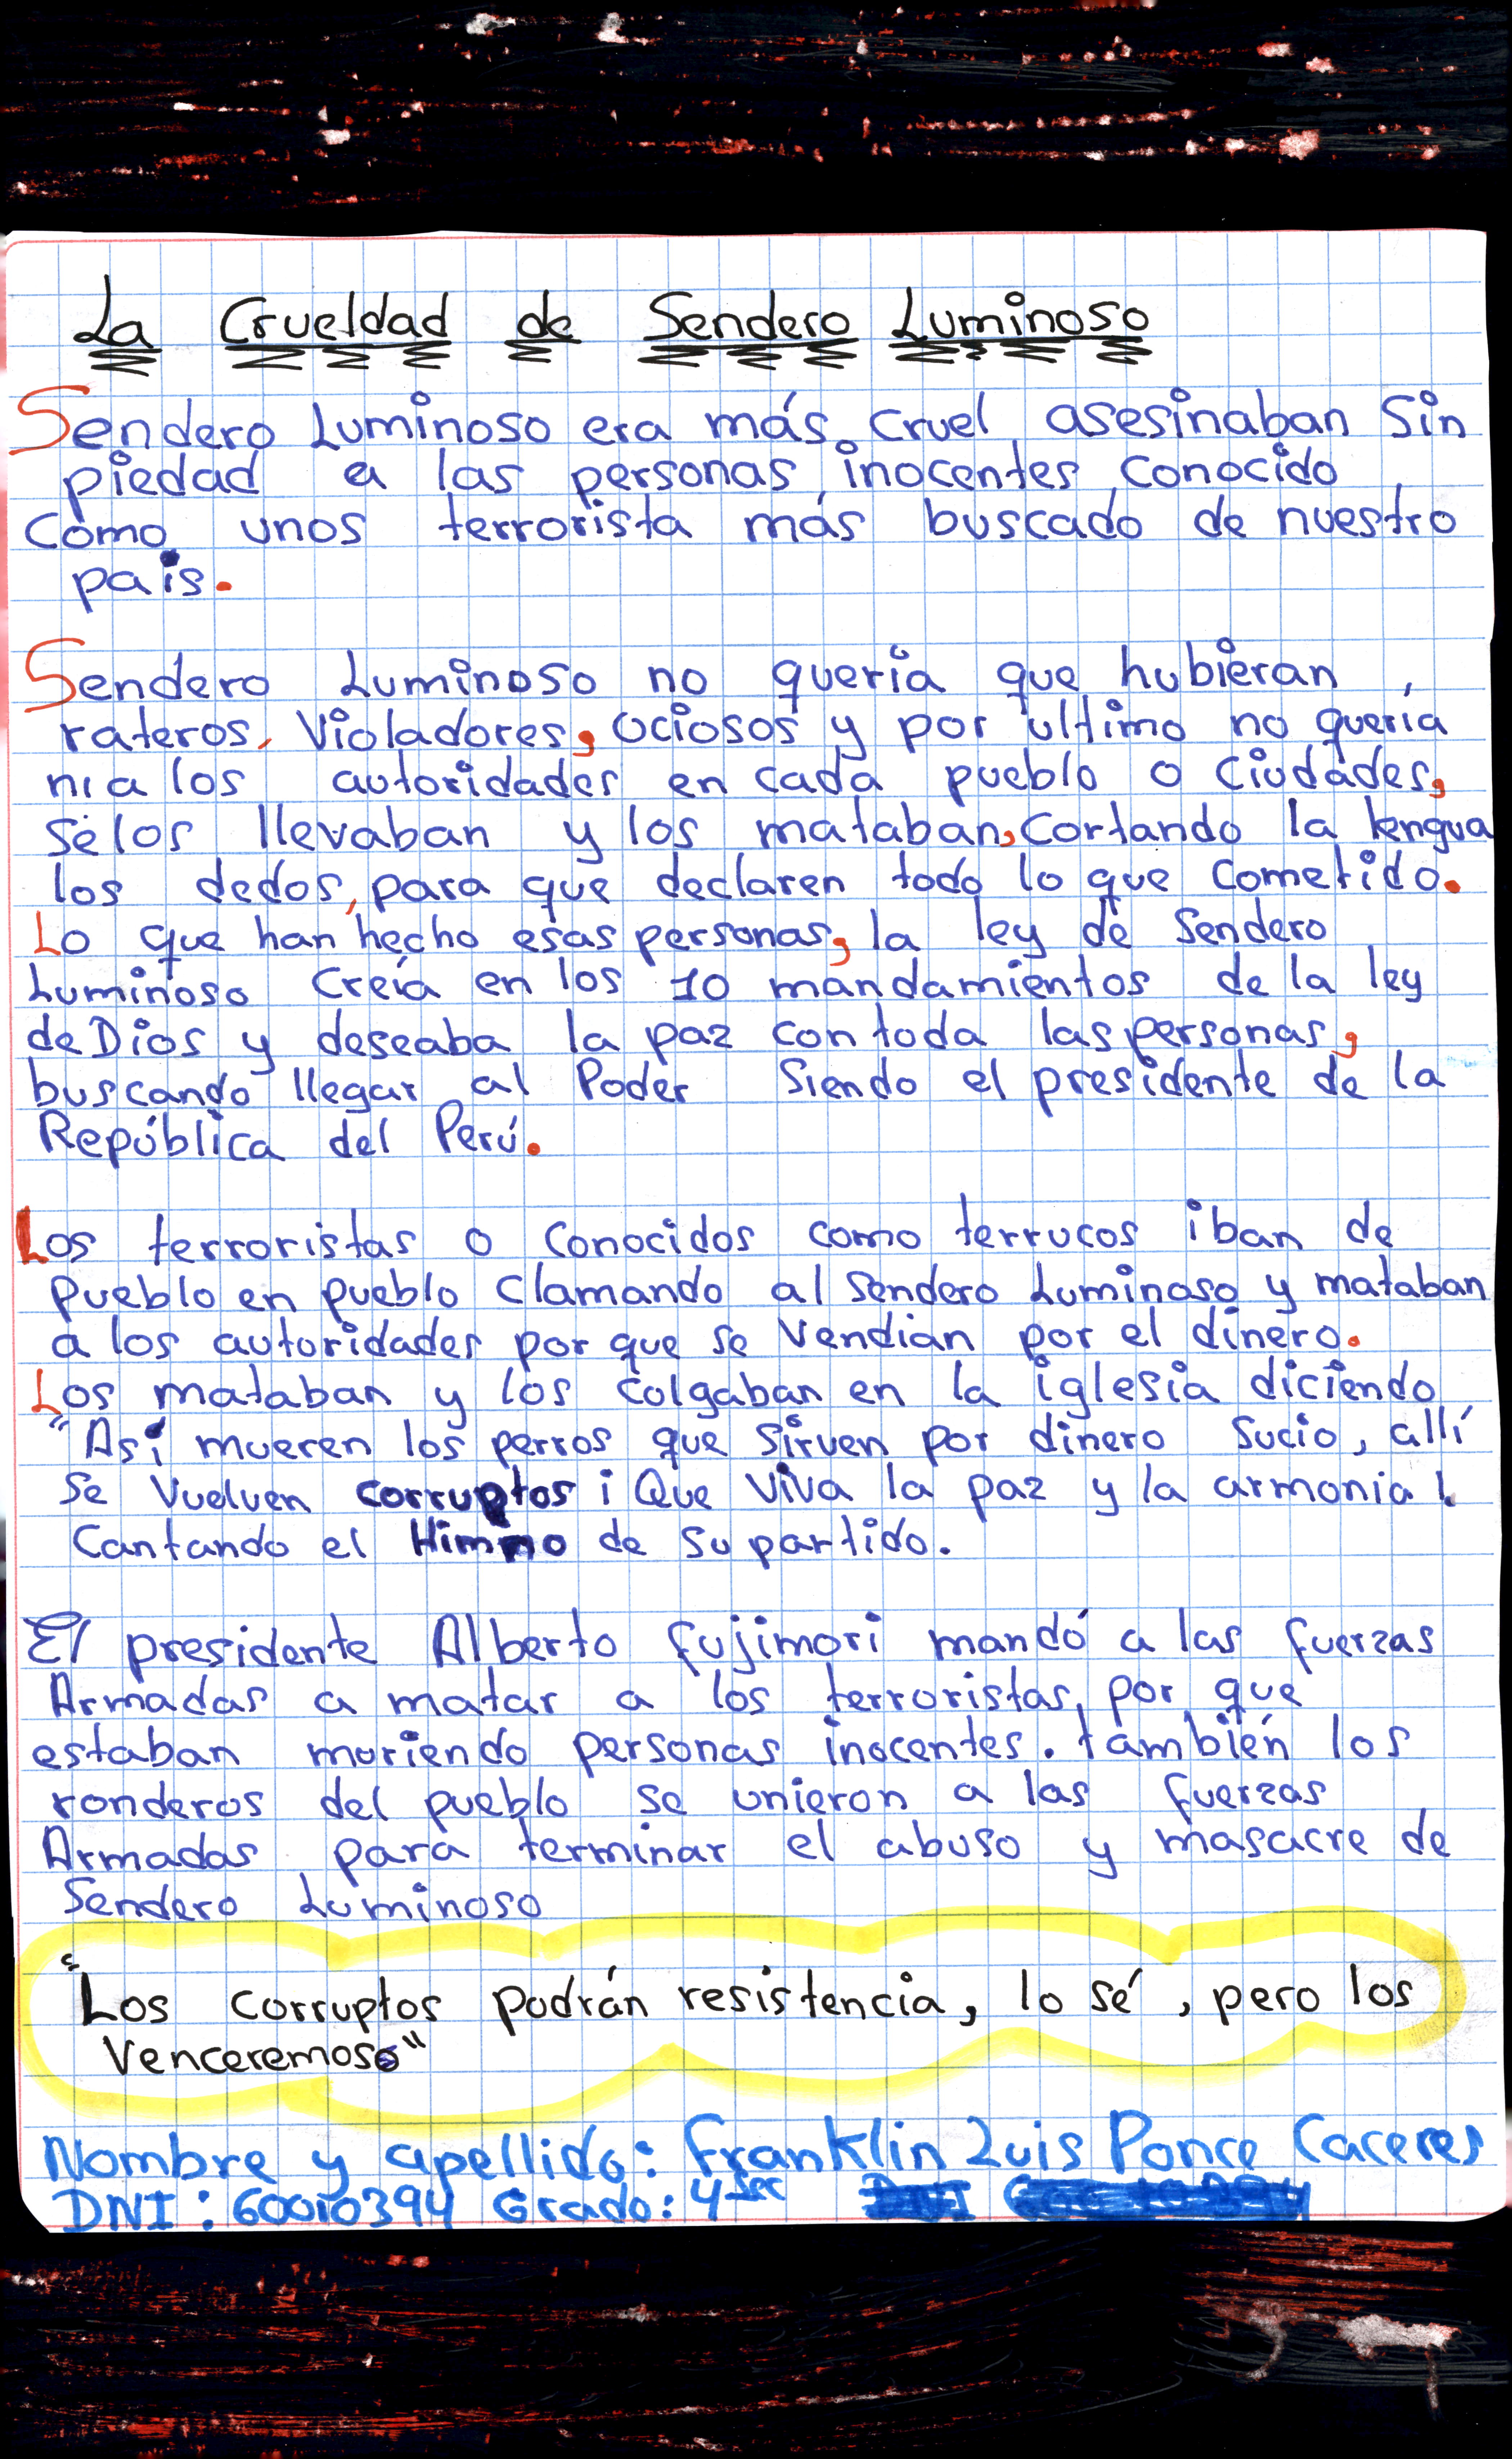 La Crueldad de Sendero Luminoso
Sendero Luminoso era más cruel, asesinaban sin
piedad a las personas inocentes, conocido
como unos terrorista más buscado de nuestro
pais.
Sendero Luminoso no quería que hubieran,
rateros, violadores, ociosos y por último no quería
ni a los autoridades en cada pueblo o ciudades,
se los llevaban y los mataban, cortando la lengua
los dedos, para que declaren todo lo que cometido.
Lo que han hecho esas personas, la ley de Sendero
Luminoso creía en los 10 mandamientos de la ley
de Dios y deseaba la paz con toda las personas,
buscando llegar al Poder siendo el presidente de la
República del Perú.
Los terroristas o conocidos como terrucos iban de
Pueblo en pueblo clamando al Sendero Luminoso y mataban
a los autoridades por que se vendían por el dinero.
Los mataban y los colgaban en la iglesia diciendo
"Así mueren los perros que sirven por dinero sucio, allí
se vuelven corruptos ¡Que viva la paz y la armonia!.
Cantando el Himno de su partido.
El presidente Alberto fujimori mandó a las fuerzas
Armadas a matar a los terroristas, por que
estaban muriendo personas inocentes. también los
ronderos del pueblo se unieron a las fuerzas
Armadas para terminar el abuso y masacre de
Sendero Luminoso
"Los corruptos podrán resistencia, lo sé, pero los
Venceremos"
Nombre y apellido: Franklin Luis Ponce Caceres
DNI: 60010394 Grado: 4 Sec